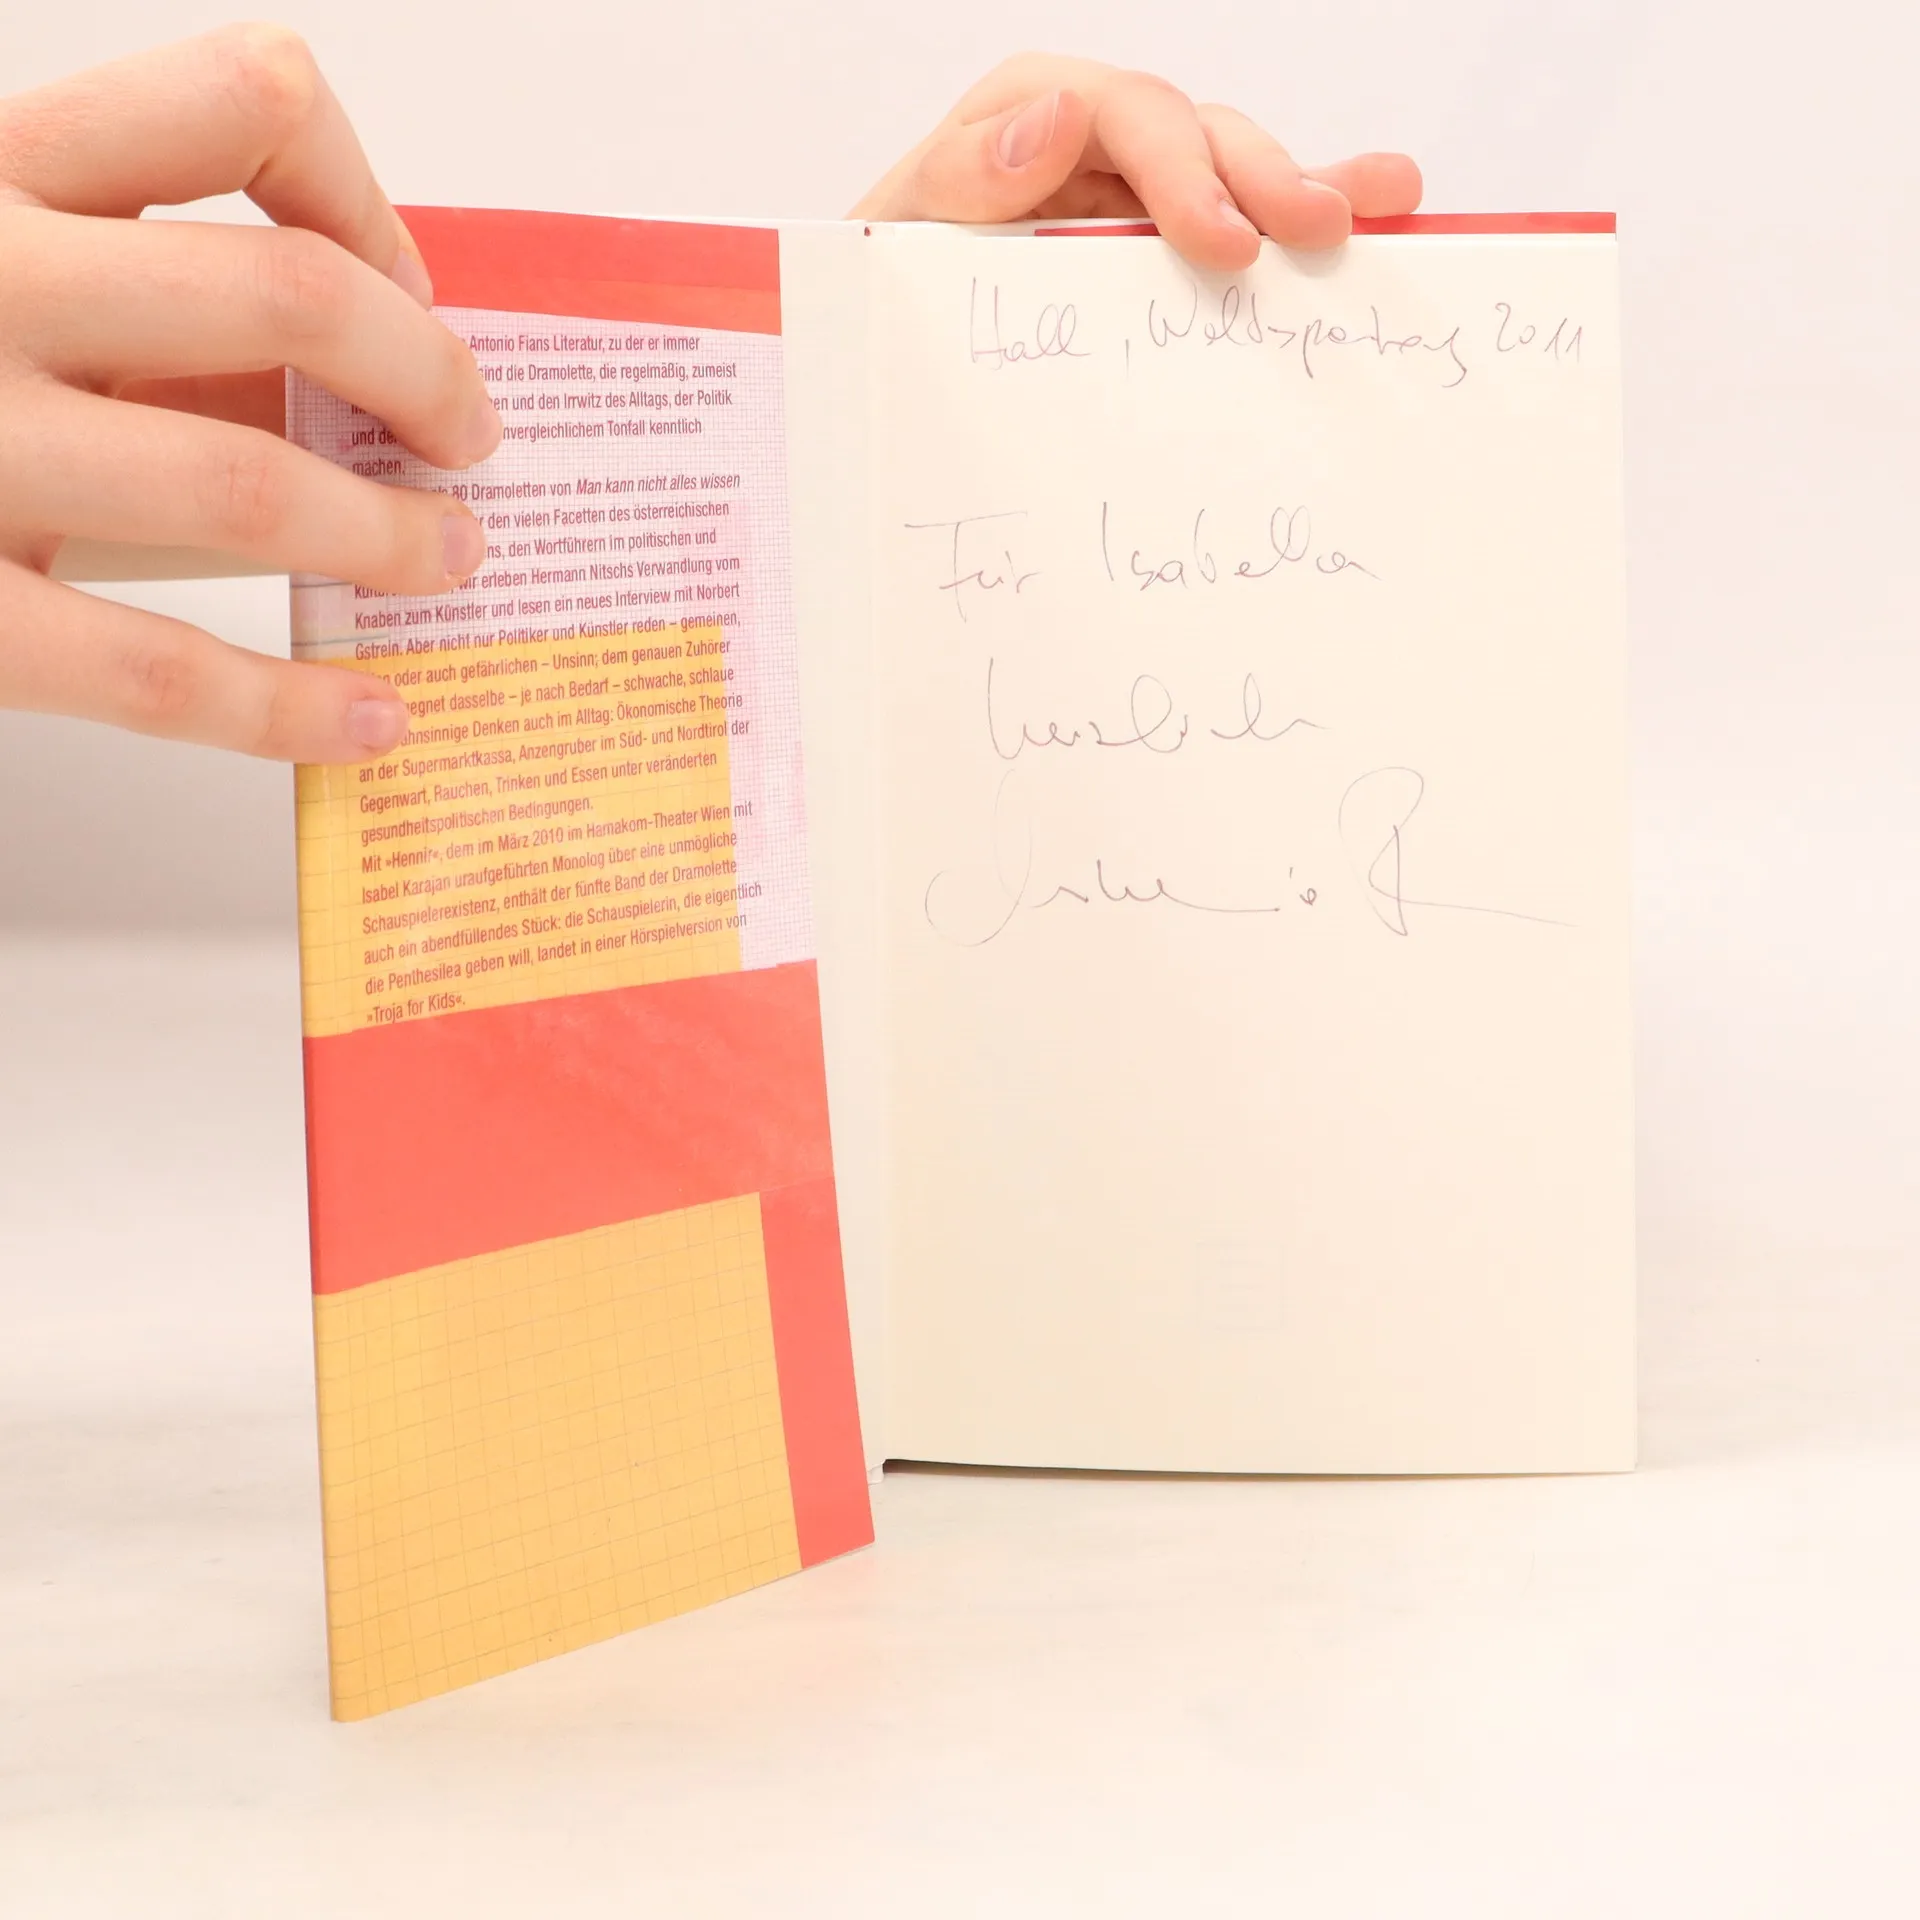 Antonio Fians Literatur, zu der er immer
sind die Dramolette, die regelmäßig, zumeist
en und den Irrwitz des Alltags, der Politik
und nvergleichlichem Tonfall kenntlich
machen.
80 Dramoletten von Man kann nicht alles wissen
den vielen Facetten des österreichischen
ns, den Wortführern im politischen und
wir erleben Hermann Nitschs Verwandlung vom
Knaben zum Künstler und lesen ein neues Interview mit Norbert
Gstrein. Aber nicht nur Politiker und Künstler reden – gemeinen,
oder auch gefährlichen – Unsinn; dem genauen Zuhörer
egnet dasselbe – je nach Bedarf – schwache, schlaue
ahnsinnige Denken auch im Alltag: Ökonomische Theorie
an der Supermarktkassa, Anzengruber im Süd- und Nordtirol der
Gegenwart, Rauchen, Trinken und Essen unter veränderten
gesundheitspolitischen Bedingungen.
Mit »Hennir«, dem im März 2010 im Hamakom-Theater Wien mit
Isabel Karajan uraufgeführten Monolog über eine unmögliche
Schauspielerexistenz, enthält der fünfte Band der Dramolette
auch ein abendfüllendes Stück: die Schauspielerin, die eigentlich
die Penthesilea geben will, landet in einer Hörspielversion von
»Troja for Kids«.
Hall, Weltspartag 2011
Für Isabella
herzlich